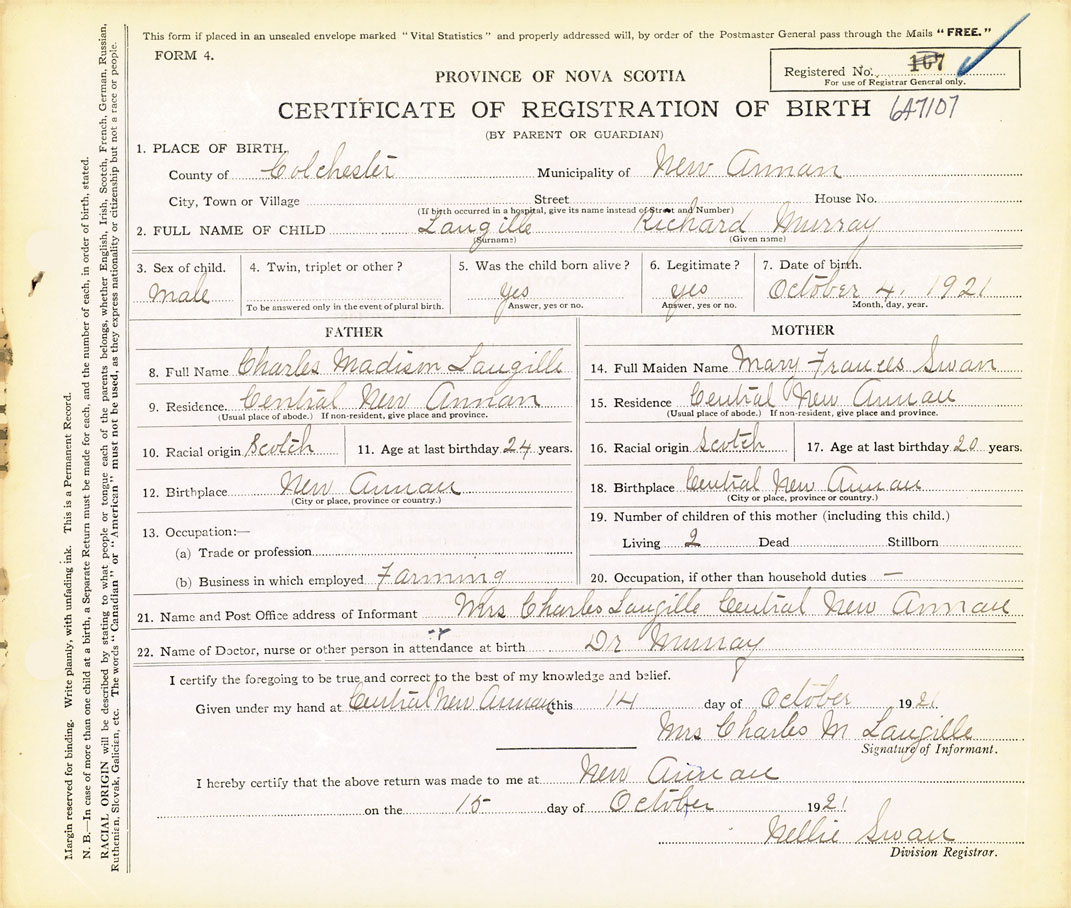 This form if placed in an unsealed envelope marked "Vital Statistics" and properly addressed will, by order of the Postmaster General pass through the Mails "FREE."
FORM 4.
Registered No. 107
For use of Registrar General only.
PROVINCE OF NOVA SCOTIA
CERTIFICATE OF REGISTRATION OF BIRTH 647107
(BY PARENT OR GUARDIAN)
1. PLACE OF BIRTH,
County of Colchester Municipality of New Annan
City, Town or Village Street House No.
(If birth occurred in a hospital, give its name instead of Street and Number)
2. FULL NAME OF CHILD Langille Richard Murray
(Surname) (Given name)
3. Sex of child. 4. Twin, triplet or other? 5. Was the child born alive? 6. Legitimate? 7. Date of birth.
Male yes yes October 4, 1921
To be answered only in the event of plural birth. Answer, yes or no. Answer, yes or no. Month, day, year.
FATHER
8. Full Name Charles Madison Langille
9. Residence. Central New Annan
(Usual place of abode.) If non-resident, give place and province.
10. Racial origin Scotch 11. Age at last birthday 24 years.
12. Birthplace New Annan
(City or place, province or country.)
13. Occupation:—
(a) Trade or profession
(b) Business in which employed Farming
MOTHER
14. Full Maiden Name Mary Frances Swan
15. Residence Central New Annan
(Usual place of abode.) If non-resident, give place and province.
16. Racial origin Scotch 17. Age at last birthday 20 years.
18. Birthplace Central New Annan
(City or place, province or country.)
19. Number of children of this mother (including this child.)
Living 2 Dead Stillborn
20. Occupation, if other than household duties —
21. Name and Post Office address of Informant Mrs Charles Langille Central New Annan
22. Name of Doctor, nurse or other person in attendance at birth Dr Murray
I certify the foregoing to be true and correct to the best of my knowledge and belief.
Given under my hand at Central New Annan this 14 day of October 1921
Mrs Charles M Langille
Signature of Informant.
I hereby certify that the above return was made to me at New Annan
on the 15 day of October 1921
Nellie Swan
Division Registrar.
Margin reserved for binding. Write plainly, with unfading ink. This is a Permanent Record.
N. B.—In case of more than one child at a birth, a Separate Return must be made for each, and the number of each, in order of birth, stated.
RACIAL ORIGIN will be described by stating to what people or tongue each of the parents belongs, whether English, Irish, Scotch, French, German, Russian,
Ruthenian, Slovak, Galician, etc. The words "Canadian" or "American" must not be used, as they express nationality or citizenship but not a race or people.